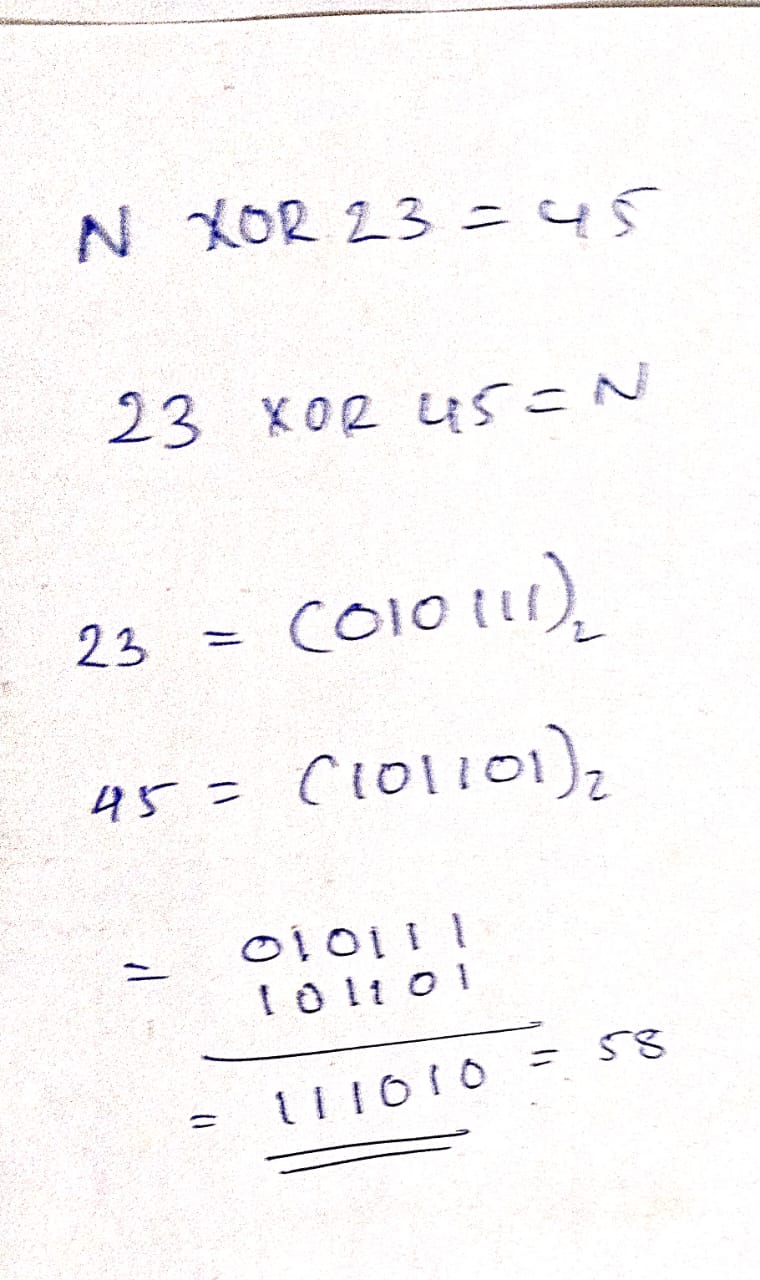 N XOR 23 = 45
23 XOR 45 = N
23 = (010111)₂
45 = (101101)₂
= 010111
101101
= 111010 = 58